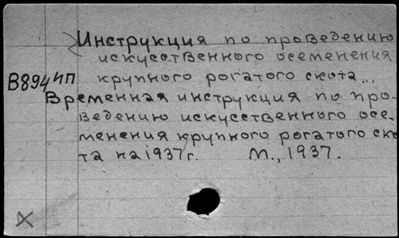 Инструкция по проведению
искусственного осеменения
В894ип крупного рогатого скота...
Временная инструкция по про-
ведению искусственного осе-
менения крупного рогатого ско
та на 1937г. М., 1937.